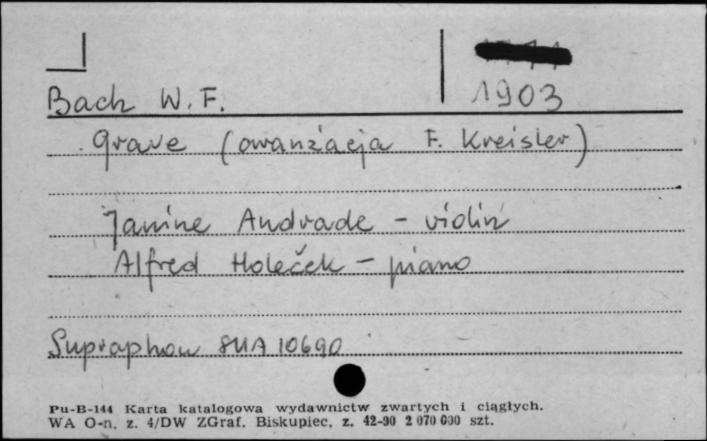 1903
Bach W. F.
Grave (aranżacja F. Kreisler)
Janine Andrade - violin
Alfred Holeček - piano
Supraphon SUA 10690
Pu-B-144 Karta katalogowa wydawnictw zwartych i ciągłych.
WA O-n. z. 4/DW ZGraf. Biskupiec. z. 42-90 2 070 000 szt.